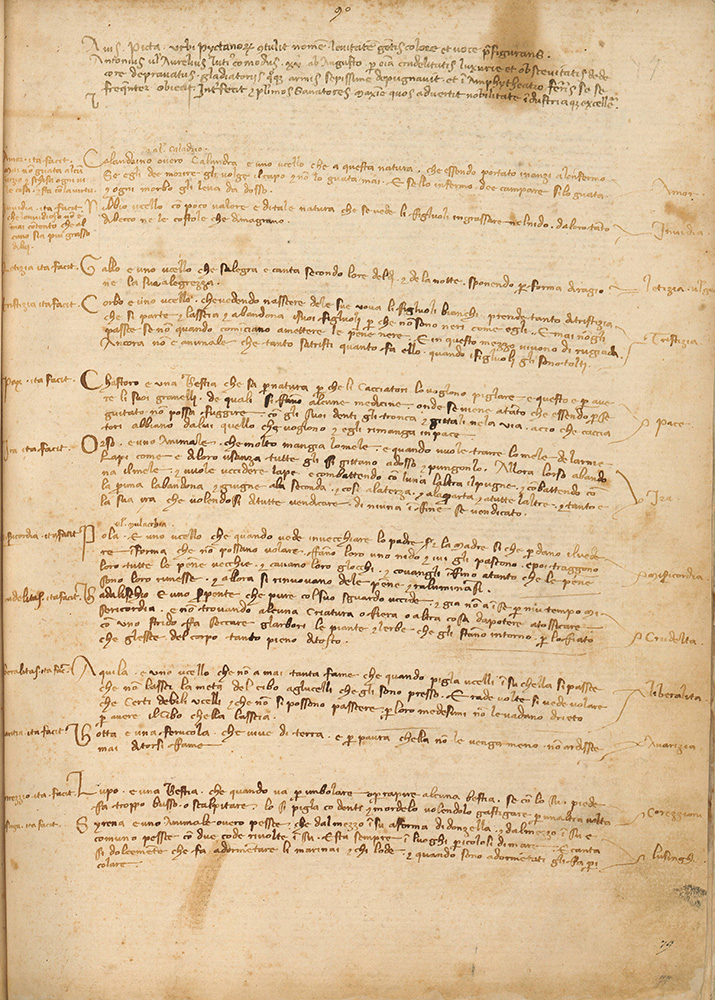 90
Avis. Picta. urbi pyctanorum contulit nomen levitatem gentis colore et voce prefigurans.
Antonius vel Aurelius luti comodus. ab Augusto. p oia crudelitatis luxurie et obscevitatis dede
core depravatus. gladiatoriis armis sepissime depugnavit. et i Amphytheatro feris se se
freqnter obiecit. Intrfecit plimos Sanatores. Maxie quos advertit nobilitate idustria excelle
al Caladrio.
Amor. ita facit. Calandrino overo Calandra e uno ucello che a questa natura. che essendo portato inanzi alonfermo
Se egli dee morire gli volge il capo y no lo guata mai. E se lo infermo dee campare silo guata
y ogni morbo gli leva da dosso. Amor.
Invidia. ita facit. Nibbio ucello co poco valore e di tale natura che se vede li figliuoli ingrossare nelnido. daloro tanto
Abecco ne le costole che dimagrano. Invidia
Letizia ita facit. Gallo e uno ucello che salegra e canta secondo lore del di y de la notte. sponendo p forma di ragio
ne la sua alegrezza. letizia
Tristizia. ita facit. Corbo e uno ucello. che vedendo nassere dele sue vova li figliuoli bianchi. prende tanto di tristizia
che si parte y lasseia y abandona isuoi figliuoli p che no sono neri come egli. E mai no gli
passe se no quando comiciano amettere le pene nere. E in questo mezzo vivono di rugiada.
Ancora no e animale che tanto satristi quanto fa ello. quando ifigliuoli gli sono tolti. Tristizia.
Pax. ita facit. Chastoro e una bestia che sa p natura p che li Cacciatori lo vogliono pigliare. e questo e p ave
re li suoi granelli. de quali si fano alcune medicine. onde se viene a tato che essendo pse
guitato no possa fuggire. co gli suoi denti gli tronca y gittali ne la via. acio che caccia
tori abbano da lui quello che vogliono y egli rimanga in pace. Pace.
Ira ita facit. Orso. e uno Animale. che molto mangia lo mele. e quando vuole trarre lo mele de larnie
Lapi come e di loro usanza tutte gli si gittano adosso y pungonlo. Allora lorso abando
na ilmele. y vuole uccidere lape e combattendo co luna laltra il pugne. y cobattendo co
la puna labandona y giugne ala seconda. y cosi ala terza. y ala quarta y a tutte laltre. y tanto e
la sua ira che volendosi di tutte vendicare di niuna i fine se vendicato. Ira
al. mulacchia.
Misericordia. ita facit. Pola. E uno ucello che quando vede invecchiare lo padre y la Madre si che pdano il vede
re iforma che no possano volare. fano loro uno nido y ivi gli pascono. e poi traggono
loro tutte le pene vecchie. y cavano loro gliocchi. y covangli ifino atanto che le pene
sono loro rimesse. y allora si rinuovano dele pene y raluminasi. Misericordia.
Crudelitas. ita facit. Badalischio E uno spente che pure col suo sguardo uccide. y gia no a i se p niu tempo mi
sericordia. e no trovando alcuna criatura o fiera o altra cosa da potere atossicare
co uno strido fa seccare glarbori le piante y lerbe. che gli stano intorno. p lo fiato
che glesse del corpo tanto pieno di tosco. Crudelta.
Liberalitas. ita facit. Aquila. e uno ucello che no a mai tanta fame che quando pigla ucelli i su chella si passe
che no lassei la meta del cibo agliucelli che gli sono presso. E rade volte si vede volare
che Certi debili ucelli y che no si possono passere p loro medesimi no le vadano drieto
p avere il cibo chella lasseia. liberalita
ita facit. Botta e una ferucola. che vive di terra. e p paura chella no le venga meno. no ardisse
mai di torsi fame. Avarizia.
ita facit. Lupo. e una bestia. che quando va p imbolare o p rapire alcuna bestia. se co lo suo piede
fa troppo busso. o scalpitare. lo si pigla co denti y mordelo volendolo gastigare p unaltra volta Corezzione
ita facit. Syrena e uno Animale overo pesse. che dal mezzo i su a forma di donzella. y dal mezzo i su e
comuno pesse co due code rivolte i su. E sta sempre i luoghi picolosi di mare. E canta
si dolcemete che fa adormetare li marinai y chi lode. y quando sono adormetati gli fa pi
colare. lusinghe
79